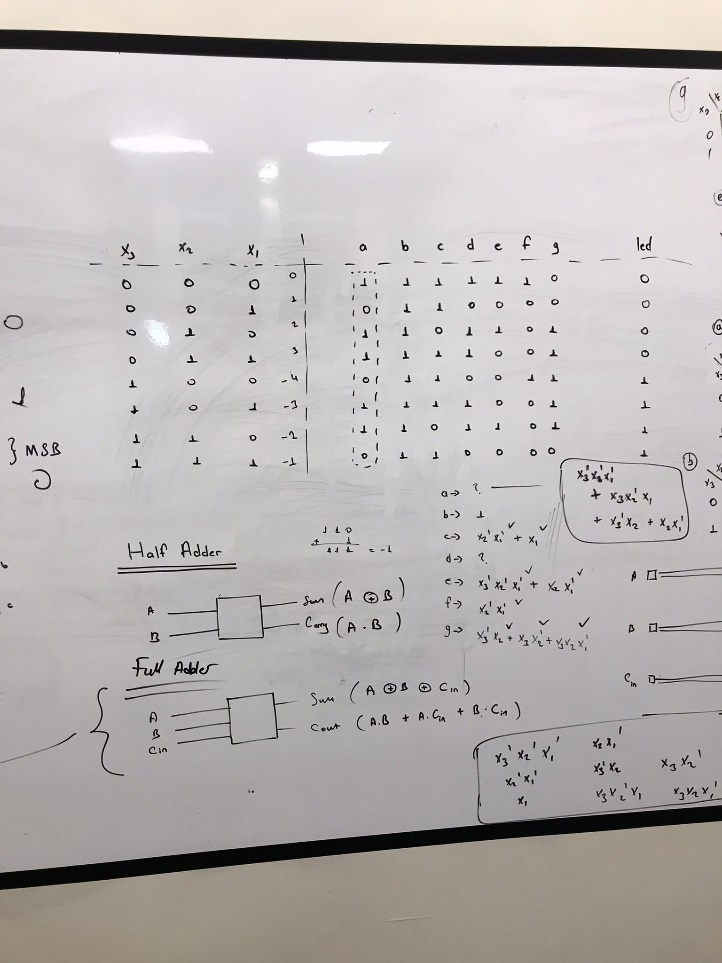 g
x₃ x₂ x₁ a b c d e f g led
0 0 0 0 1 1 1 1 1 1 0 0
0 0 1 1 0 1 1 0 0 0 0 0
0 1 0 2 1 1 0 1 1 0 1 0
0 1 1 3 1 1 1 1 0 0 1 0
1 0 0 -4 0 1 1 0 0 1 1 1
1 0 1 -3 1 1 1 1 0 0 1 1
1 1 0 -2 1 1 0 1 1 0 1 1
1 1 1 -1 0 1 1 0 0 0 0 1
0
1
} MSB
0
a→ ?
b→ 1
c→ x₂'x₁' + x₁
d→ ?
e→ x₃'x₂'x₁' + x₂x₁'
f→ x₂'x₁'
g→ x₃'x₂ + x₃x₂' + x₃x₂x₁'
x₃'x₂'x₁'
+ x₃x₂'x₁
+ x₃'x₂ + x₂x₁'
b
x₃
0
1
110
+ 1
111 = -1
Half Adder
A
B
Sum (A ⊕ B)
Carry (A · B)
Full Adder
A
B
Cin
Sum (A ⊕ B ⊕ Cin)
Cout (A.B + A.Cin + B.Cin)
A
B
Cin
x₃'x₂'x₁' x₂x₁'
x₂'x₁' x₃'x₂ x₃x₂'
x₁ x₃x₂'x₁ x₃x₂x₁'